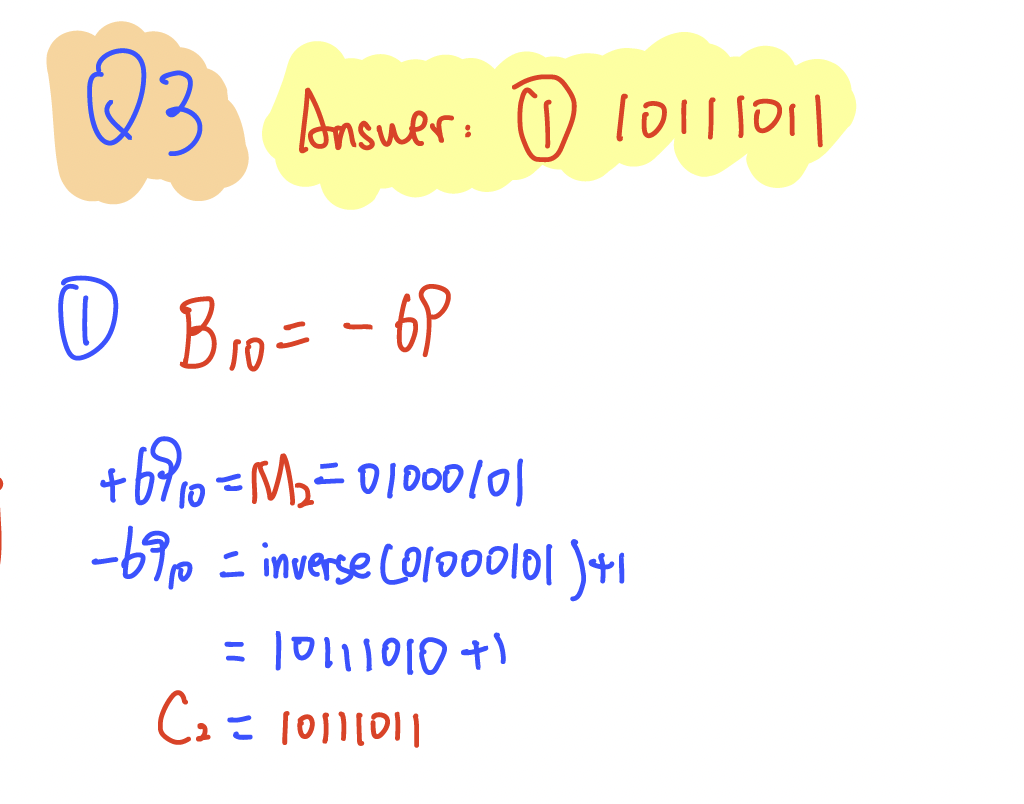 Q3
Answer: ① 10111011
① B₁₀ = -69
+69₁₀ = M₂ = 01000101
-69₁₀ = inverse(01000101)+1
= 10111010 +1
C₂ = 10111011